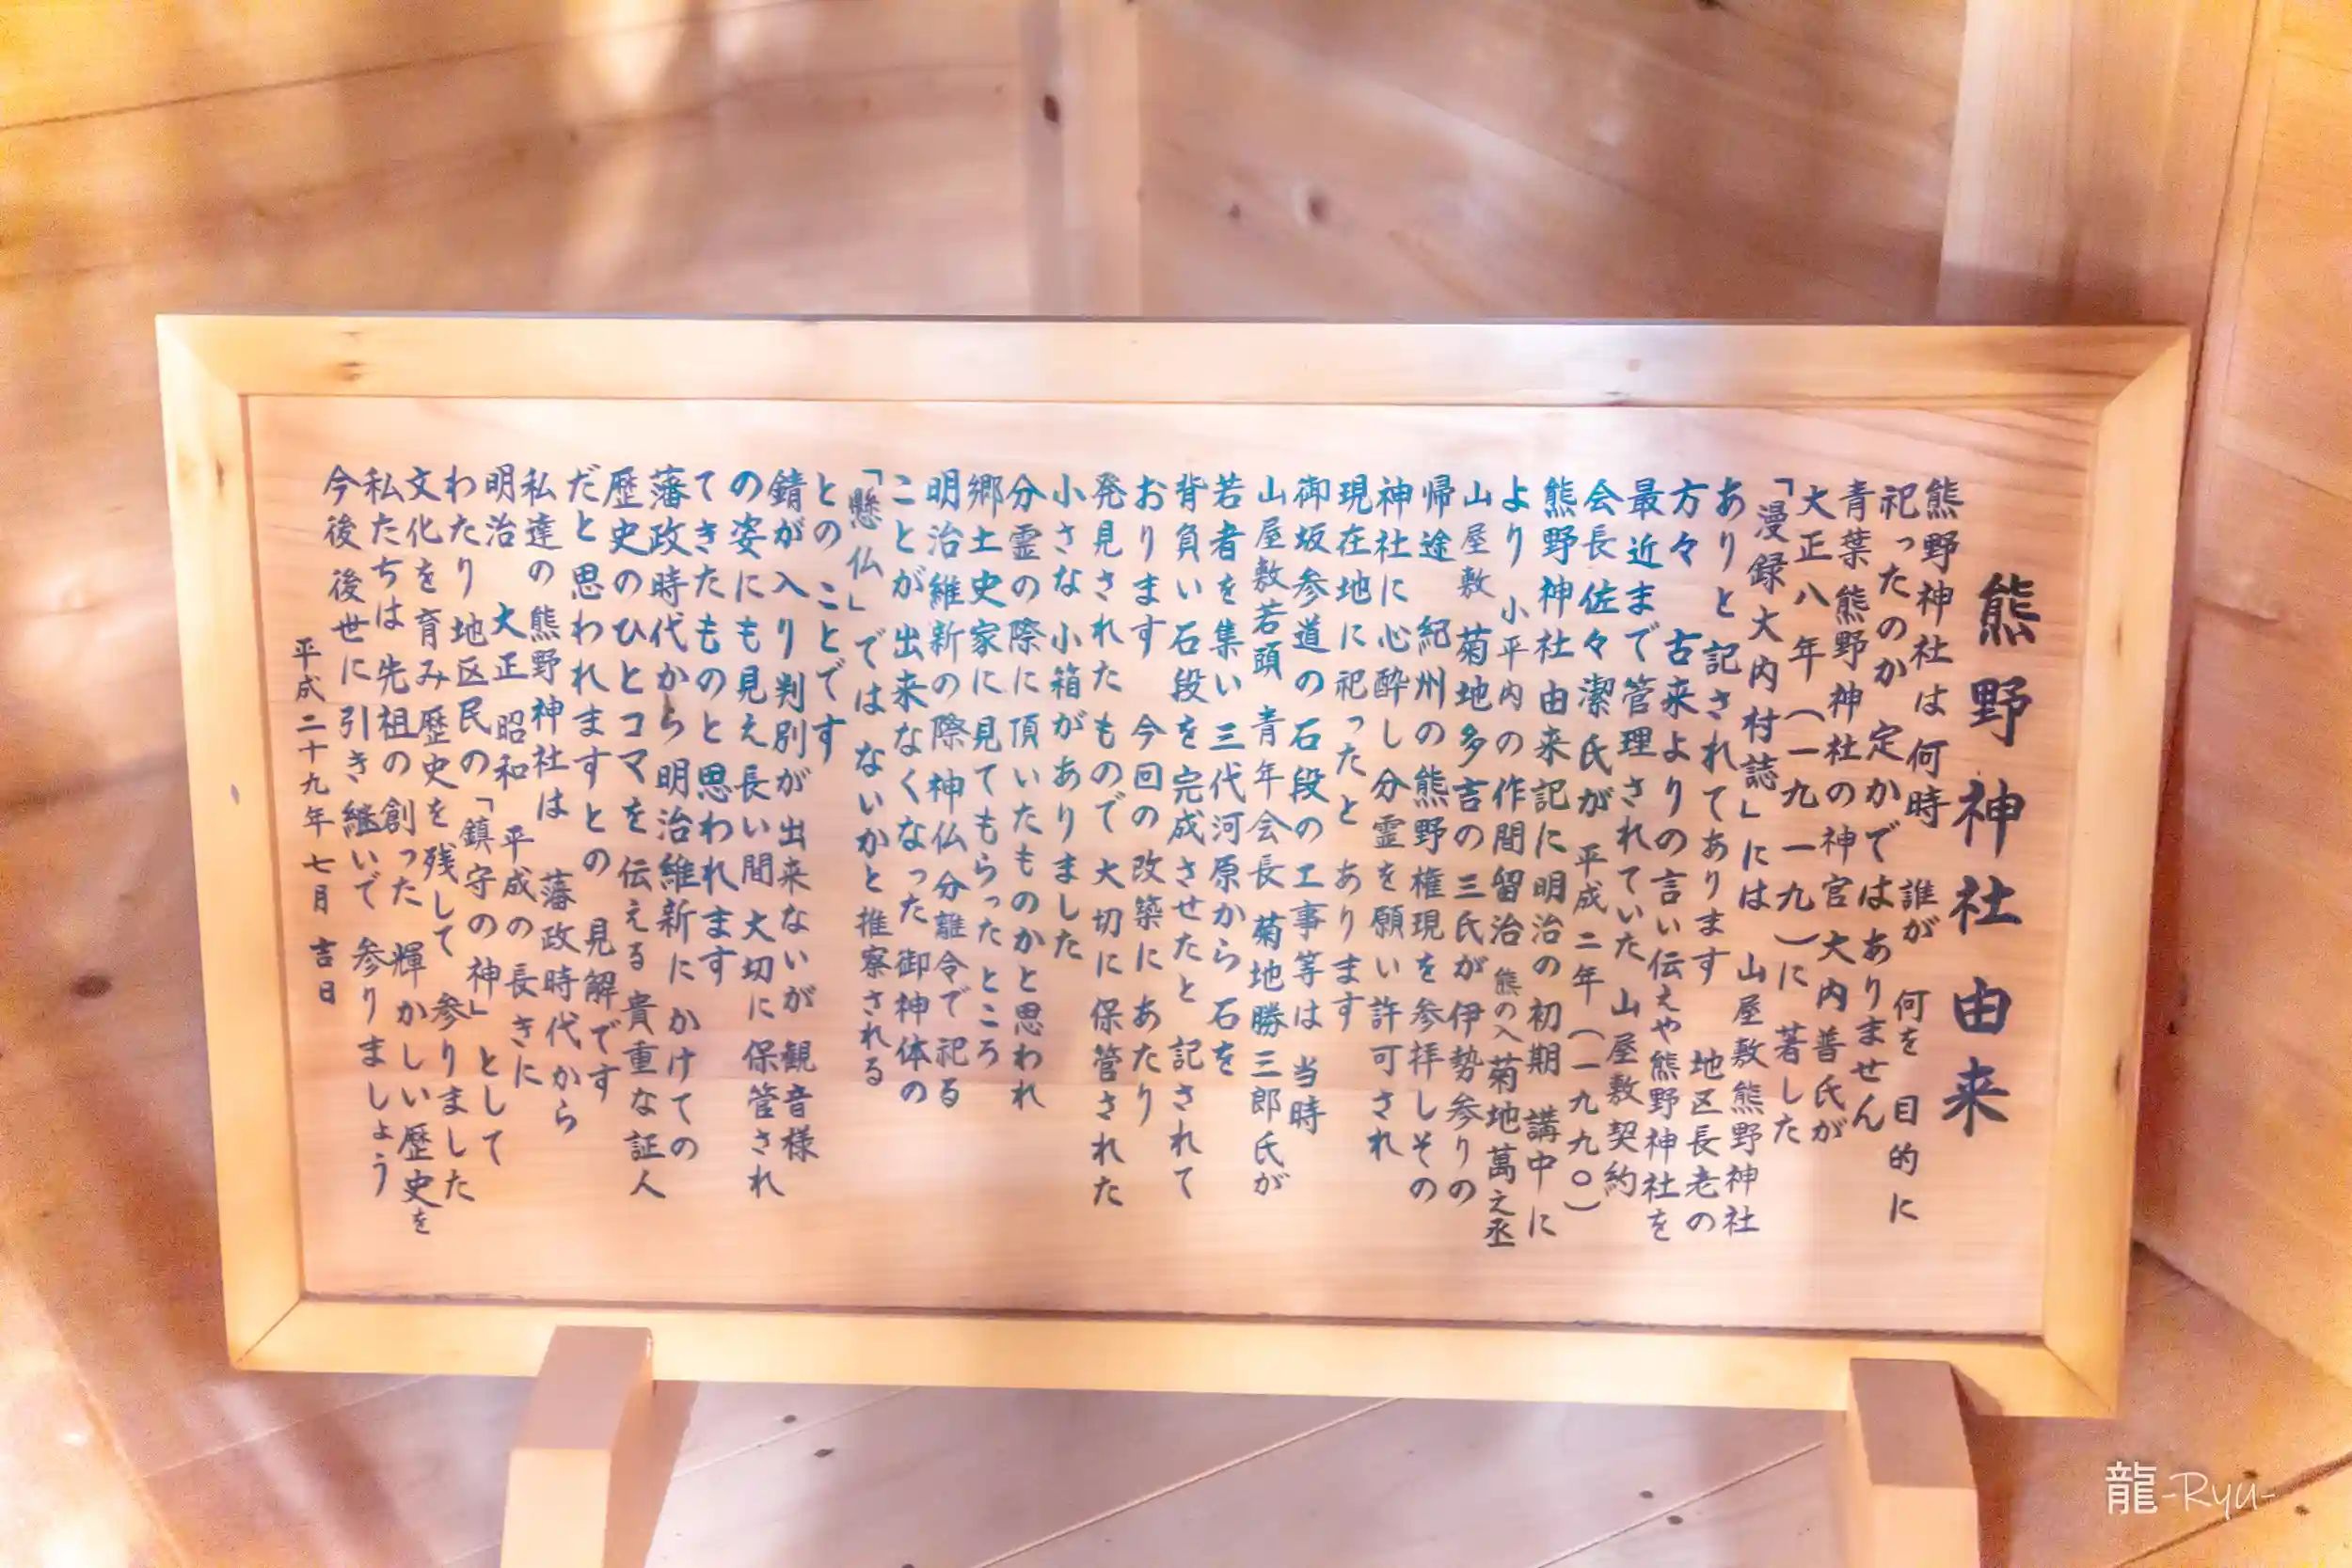 熊野神社由来
熊野神社は何時 誰が 何を 目的に
祀ったのか 定かではありません
青葉熊野神社の神官大内普氏が
大正八年(一九一九)に 著した
「漫録大内村誌」には 山屋敷熊野神社
ありと記されてあります 地区長老の
方々 古来よりの言い伝えや熊野神社を
最近まで管理されていた 山屋敷契約
会長佐々潔氏が 平成二年(一九九〇)
熊野神社由来記に明治の初期 講中に
より 小平内の作間留治 熊の入菊地萬之丞
山屋敷 菊地多吉の三氏が伊勢参りの
帰途 紀州の熊野権現を参拝しその
神社に心酔し分霊を願い許可され
現在地に祀ったと あります
御坂参道の石段の工事等は 当時
山屋敷若頭 青年会長 菊地勝三郎氏が
若者を集い三代河原から 石を
背負い石段を完成させたと 記されて
おります 今回の改築に あたり
発見されたもので大切に保管された
小さな小箱がありました
分霊の際に頂いたものかと思われ
郷土史家に見てもらったところ
明治維新の際神仏分離令で祀る
ことが出来なくなった御神体の
「懸仏」ではないかと推察される
とのことです
錆が入り判別が出来ないが観音様
の姿にも見え長い間大切に保管され
てきたものと思われます
藩政時代から明治維新に かけての
歴史のひとコマを伝える貴重な証人
だと思われますとの 見解です
私達の熊野神社は 藩政時代から
明治 大正 昭和 平成の長きに
わたり 地区民の「鎮守の神」として
文化を育み歴史を残して 参りました
私たちは先祖の創った 輝かしい歴史を
今後後世に引き継いで 参りましょう
平成二十九年 七月 吉日
龍-Ryu-